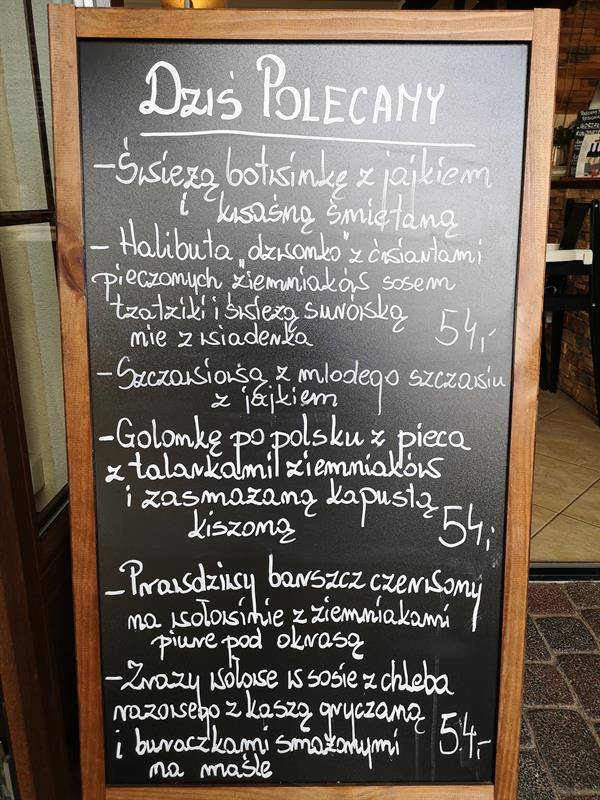 Dziś Polecamy
- Świeżą botwinkę z jajkiem
i kwaśną śmietaną
- Halibuta „dzwonko" z ćwiartami
pieczonych ziemniaków sosem
tzatziki i świeżą surówką
nie z wiaderka
54,-
- Szczawiową z młodego szczawiu
z jajkiem
- Golonkę po polsku z pieca
z talarkami ziemniaków
i zasmażaną kapustą
kiszoną
54,-
- Prawdziwy barszcz czerwony
na wołowinie z ziemniakami
piure pod okrasą
- Zrazy wołowe w sosie z chleba
razowego z kaszą gryczaną
i buraczkami smażonymi
na maśle
54,-